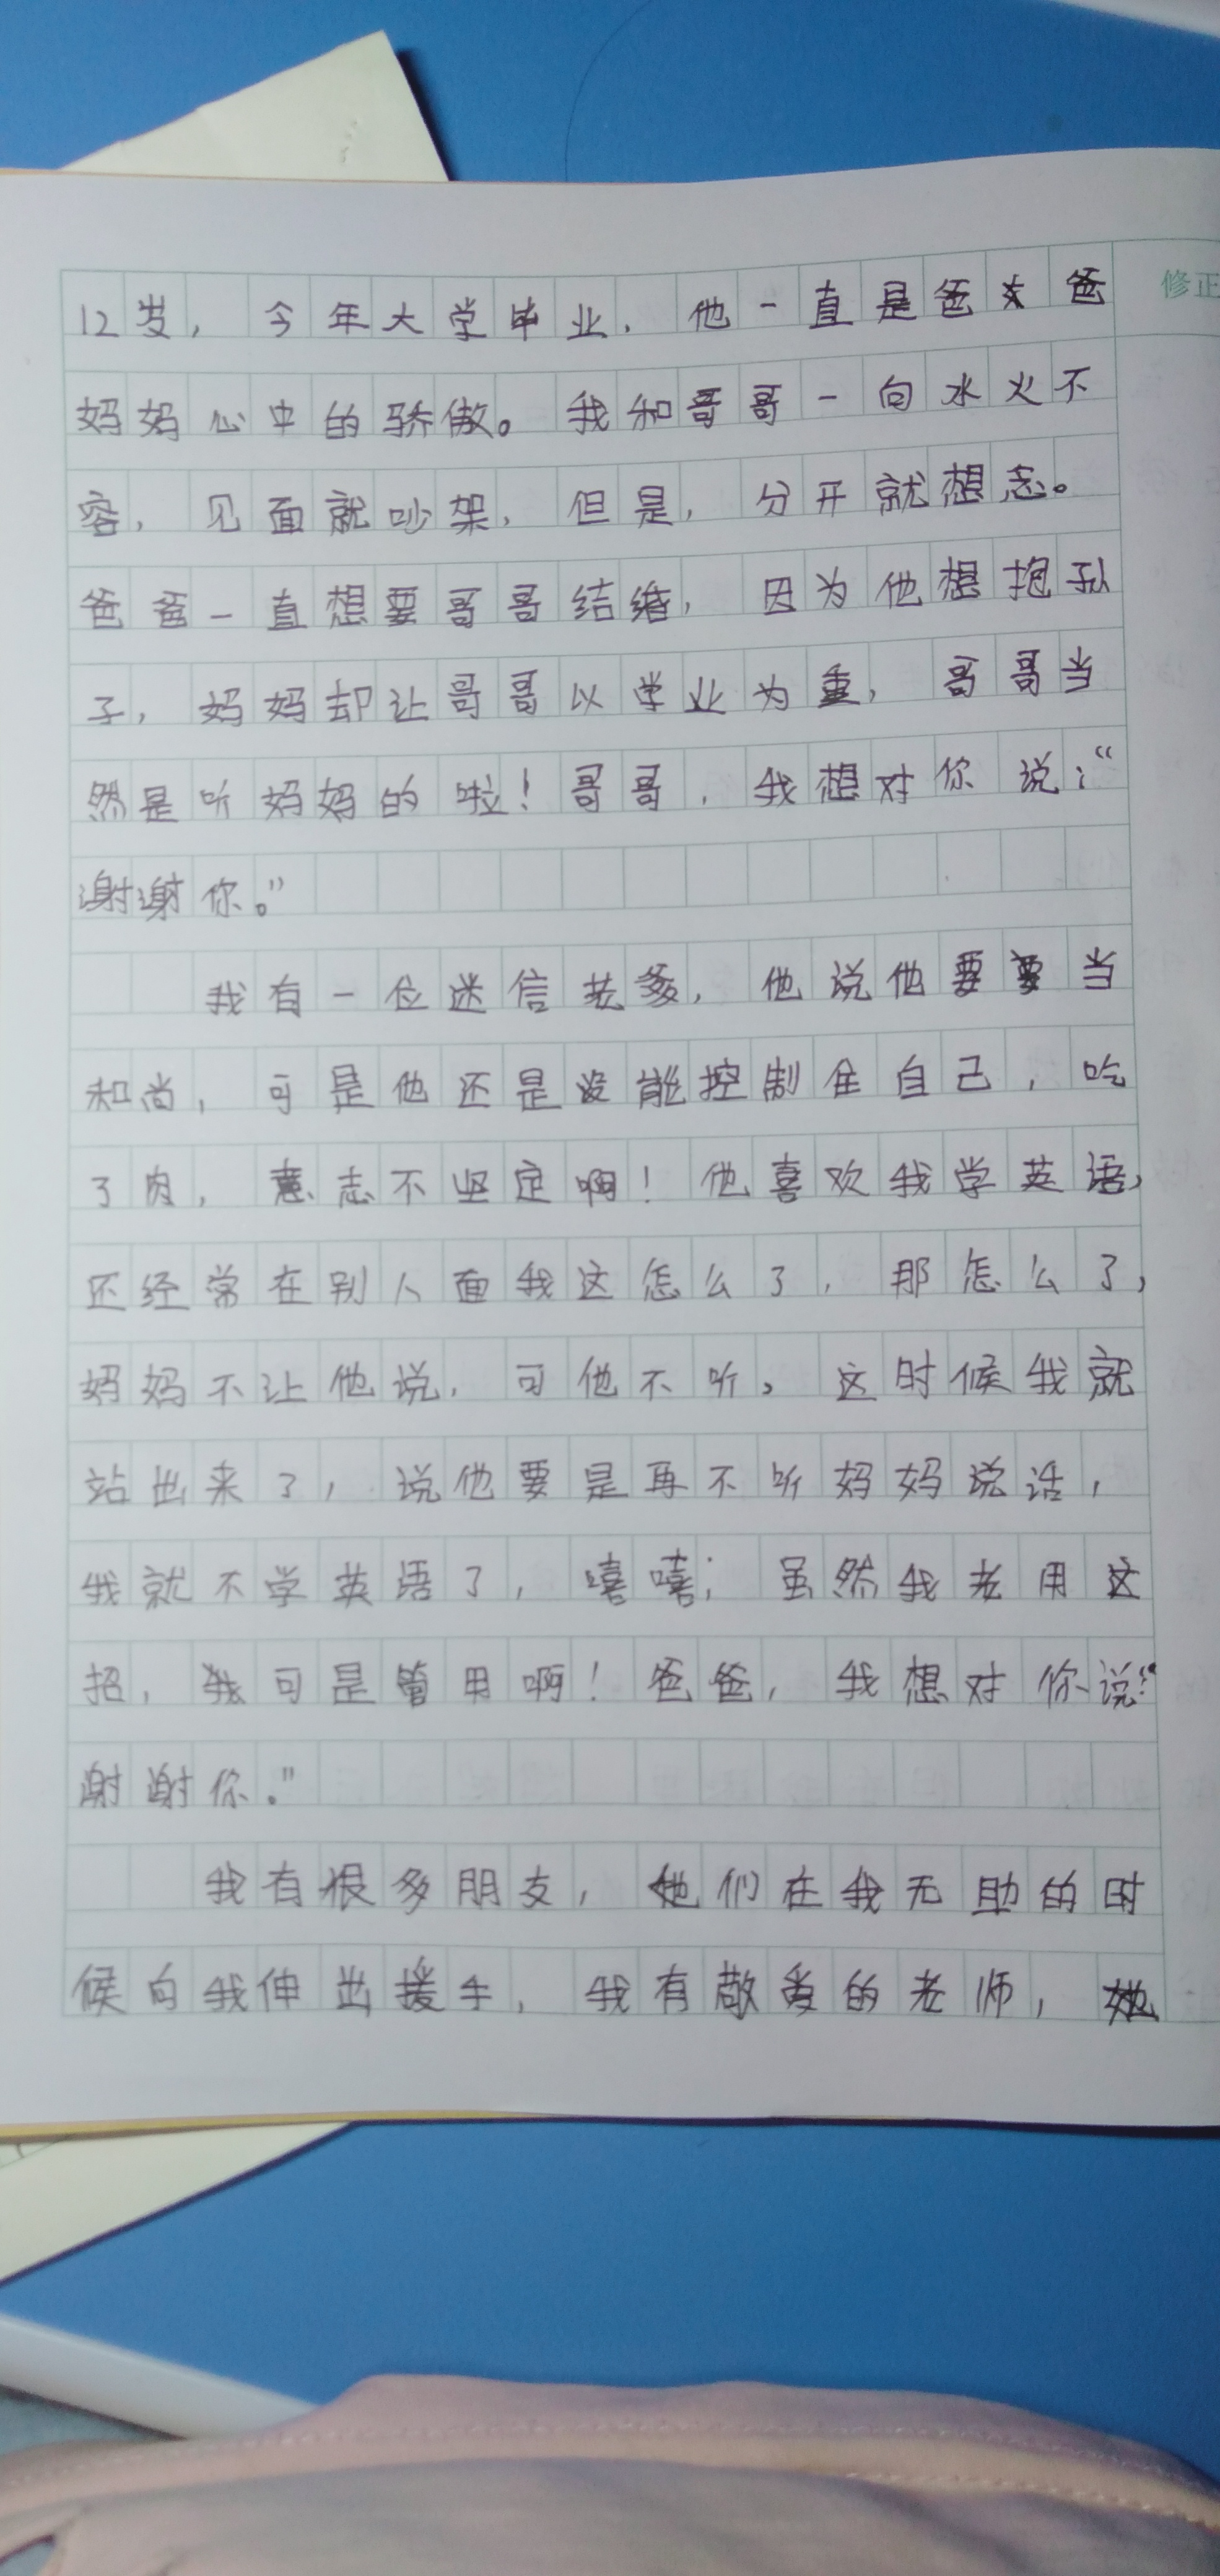 修正
12岁，今年大学毕业，他一直是爸爸
妈妈心中的骄傲。我和哥哥一向水火不
容，见面就吵架，但是，分开就想念。
爸爸一直想要哥哥结婚，因为他想抱孙
子，妈妈却让哥哥以学业为重，哥哥当
然是听妈妈的啦！哥哥，我想对你说：“
谢谢你。”
我有一位迷信老爹，他说他要当
和尚，可是他还是没能控制住自己，吃
了肉，意志不坚定啊！他喜欢我学英语，
还经常在别人面我这怎么了，那怎么了，
妈妈不让他说，可他不听。这时候我就
站出来了，说他要是再不听妈妈说话，
我就不学英语了，嘻嘻；虽然我老用这
招，我可是管用啊！爸爸，我想对你说：“
谢谢你。”
我有很多朋友，他们在我无助的时
候向我伸出援手，我有敬爱的老师，她